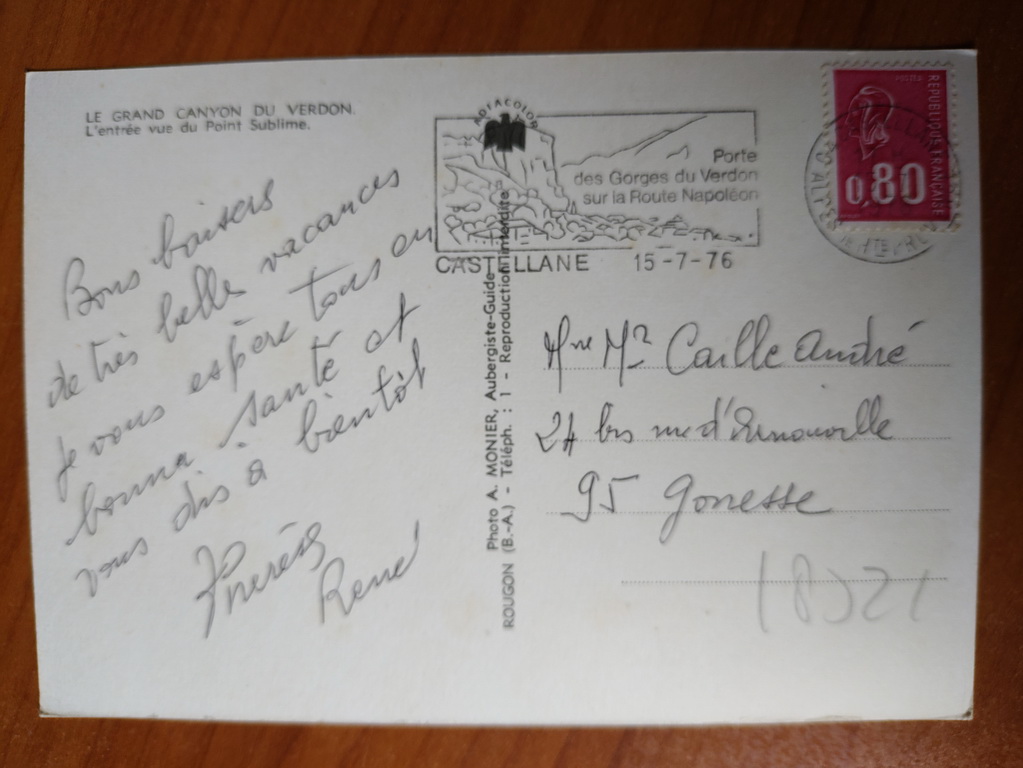 LE GRAND CANYON DU VERDON.
L'entrée vue du Point Sublime.
Bons baisers
de très belle vacances
je vous espère tous en
bonna santé et
vous dis à bientôt
René
Photo A. MONIER, Aubergiste-Guide
ROUGON (B.-A.) - Téléph. : 1 - Reproduction interdite
ROTACOLOR
Porte
des Gorges du Verdon
sur la Route Napoléon
CASTELLANE 15-7-76
POSTES
REPUBLIQUE FRANÇAISE
0,80
Mme Mr Caille André
24 bis rue d'Arnouville
95 Gonesse